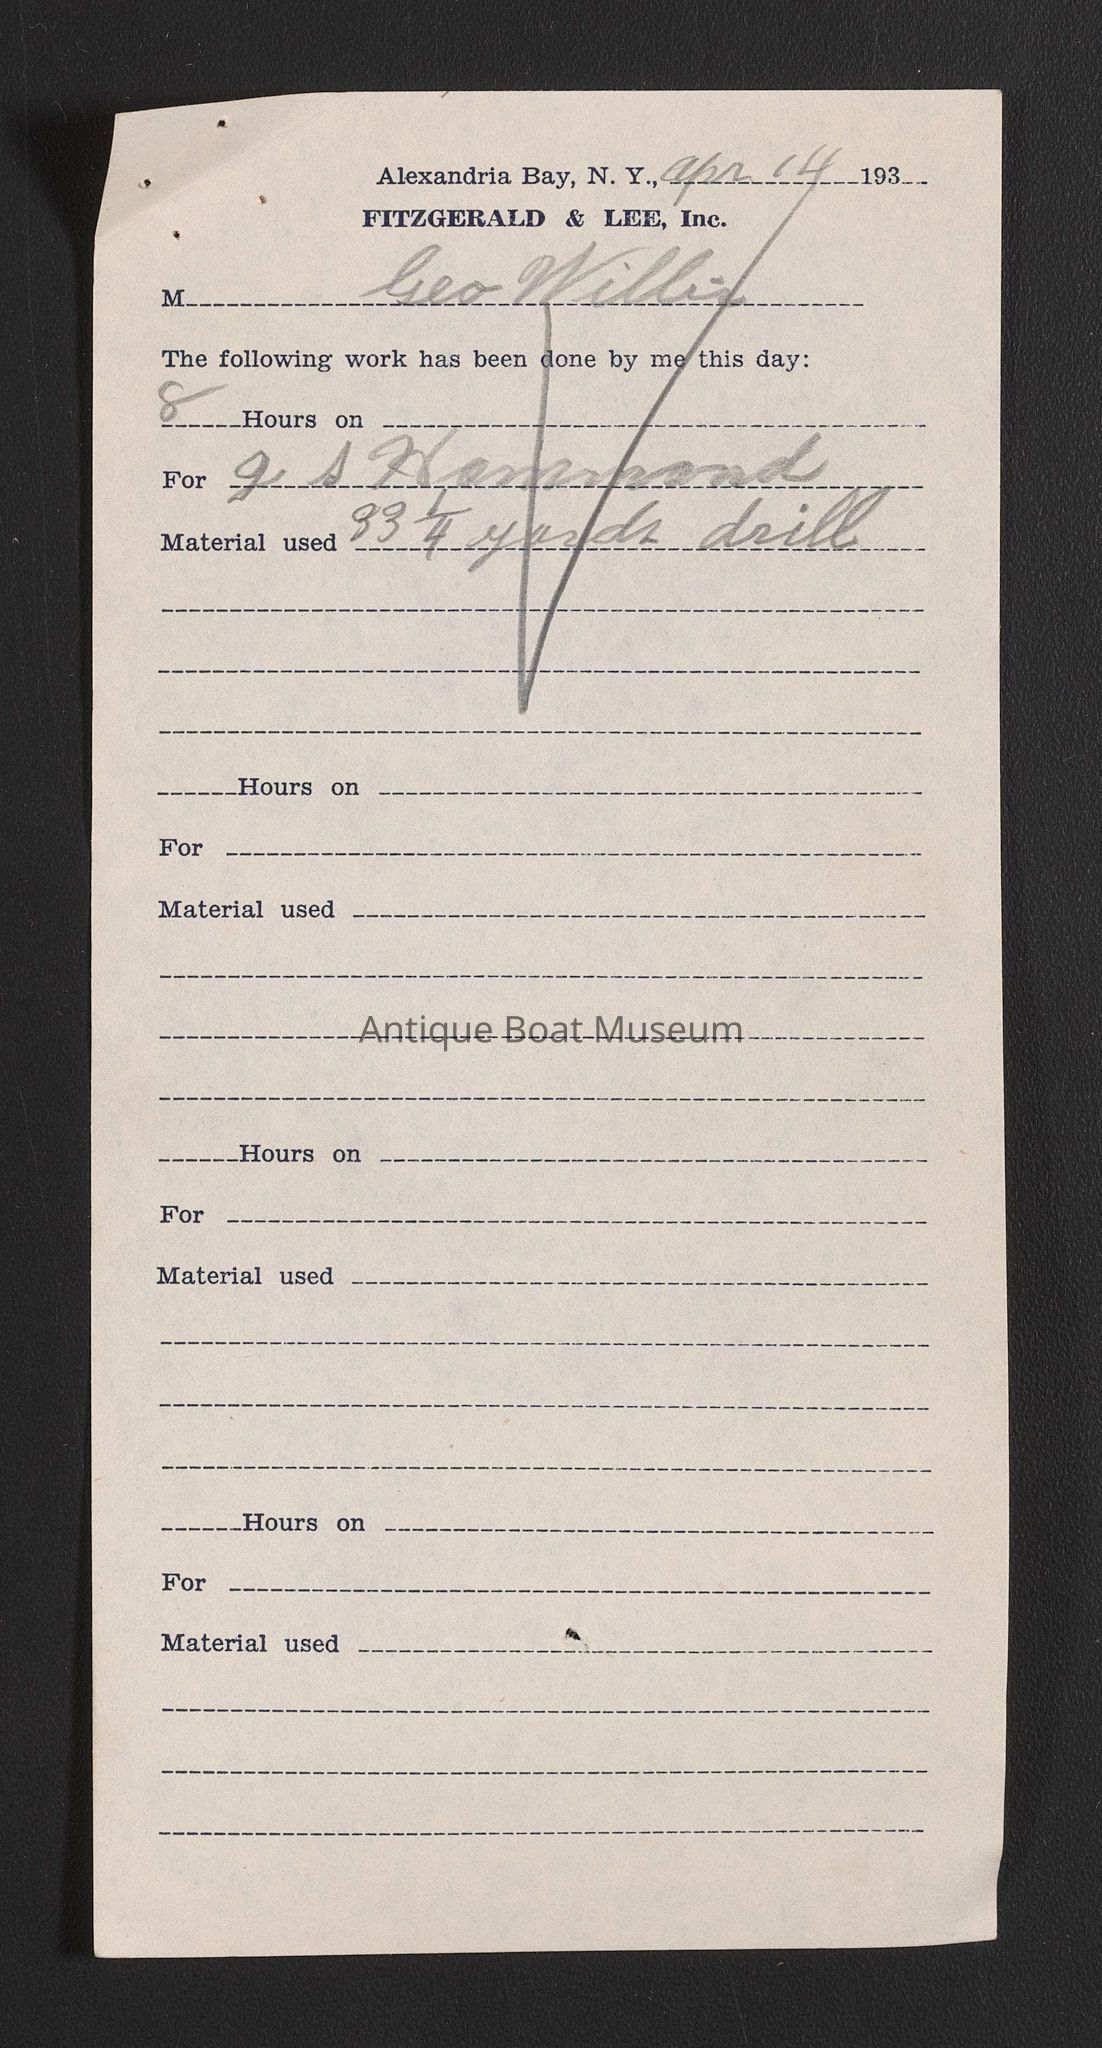 Alexandria Bay, N. Y., apr 14 193
FITZGERALD & LEE, Inc.
M Geo Willix
The following work has been done by me this day:
8 Hours on
For g s Hammond
Material used 33 1/4 yards drill
Hours on
For
Material used
Antique Boat Museum
Hours on
For
Material used
Hours on
For
Material used